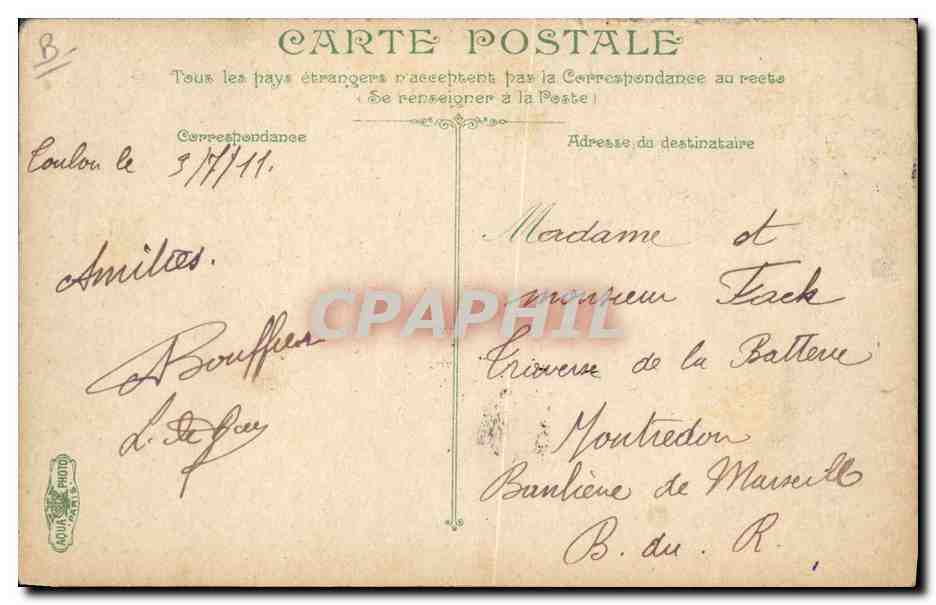 B
CARTE POSTALE
Tous les pays étrangers n'acceptent pas la Correspondance au recto
(Se renseigner à la Poste)
Correspondance
Adresse du destinataire
Toulon le 3/7/11.
Amitiés.
Bouffier
L. de
Madame et
monsieur Fack
Traverse de la Batterie
Montredon
Banlieue de Marseille
B. du. R.
CPAPHIL
AQUA PHOTO
PARIS